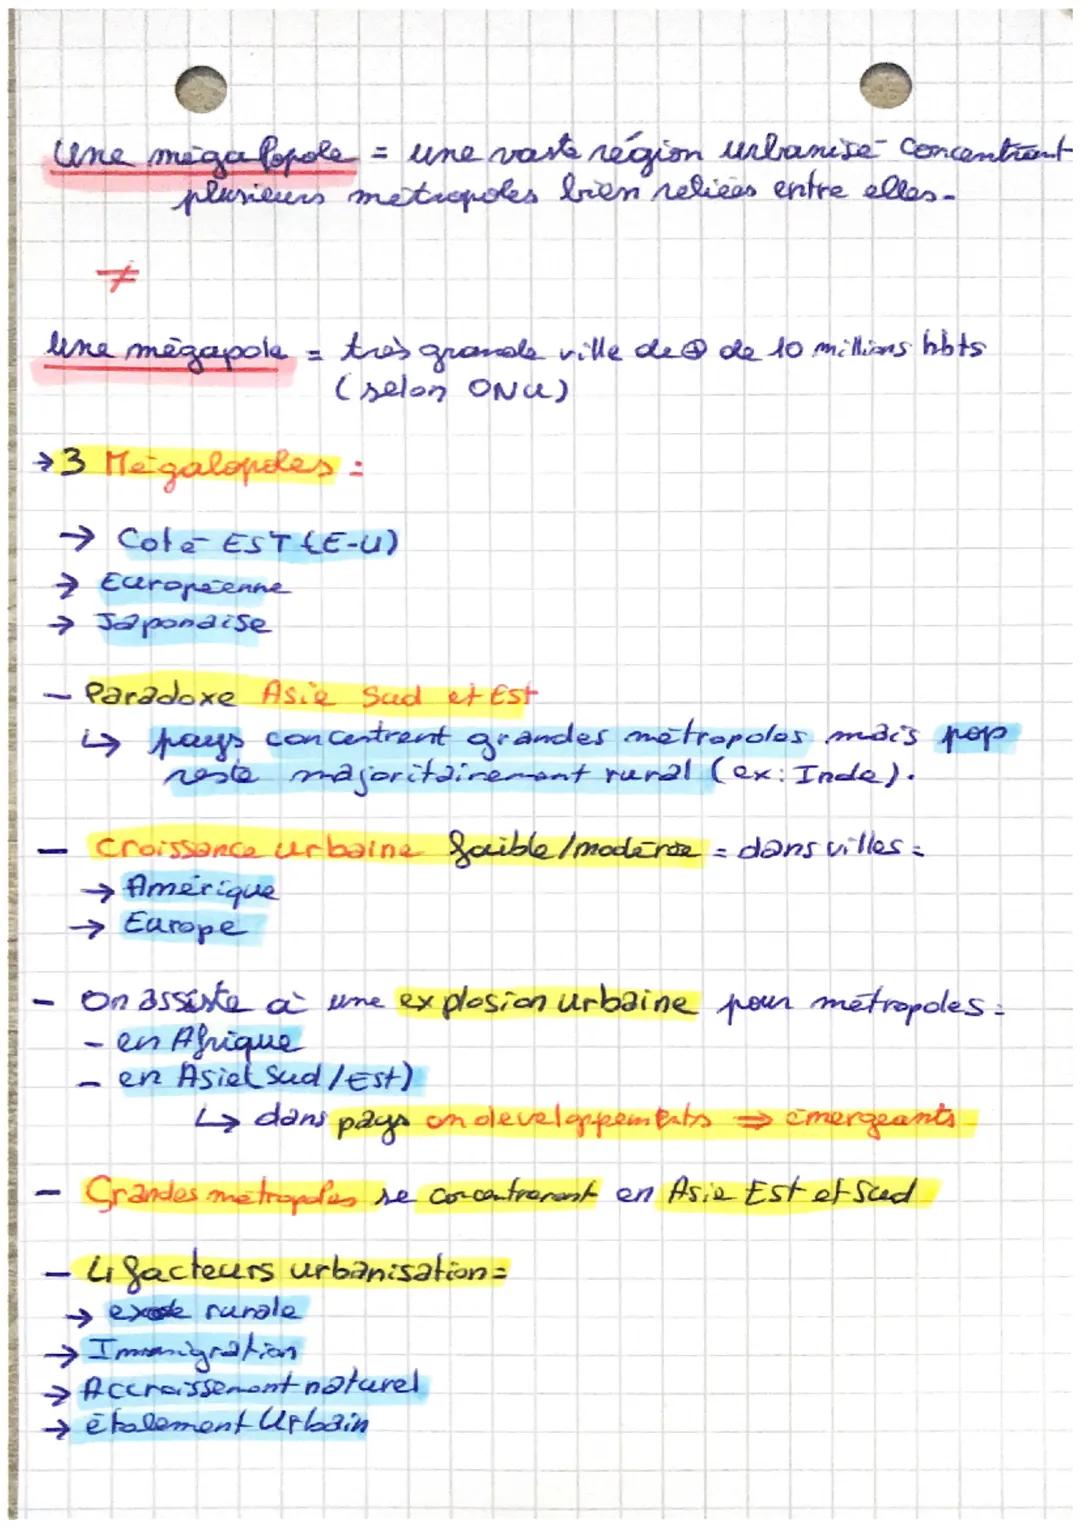 Une mégalopole = une vaste région urbanisé concentrant
plusieurs métropoles bien reliées entre elles.
≠
Une mégapole = très grande ville de ⊕ de 10 millions hbts
(selon ONU)
→ 3 Mégalopoles :
→ Coté EST (E-U)
→ Européenne
→ Japonaise
- Paradoxe Asie Sud et Est
↳ pays concentrent grandes métropoles mais pop
reste majoritairement rural (ex: Inde).
- Croissance urbaine faible/modérée = dans villes :
→ Amérique
→ Europe
- On assiste à une explosion urbaine pour métropoles :
- en Afrique
- en Asie (Sud/Est)
↳ dans pays en développements ⇒ émergeants
- Grandes métropoles se concentrent en Asie Est et Sud
- 4 facteurs urbanisation =
→ exode rurale
→ Immigration
→ Accroissement naturel
→ étalement Urbain